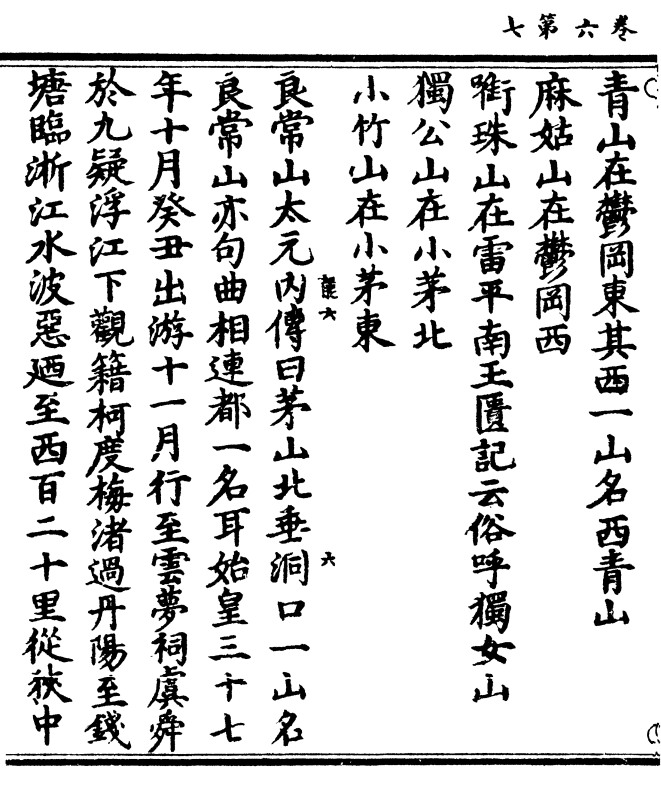 卷六第七
青山在鬱岡東其西一山名西青山
麻姑山在鬱岡西
珠山在雷平南王匱記云俗呼獨女山
獨公山在小茅北
小竹山在小茅東
六 六
良常山太元内傳曰茅山北垂洞口一山名
良常山亦句曲相連都一名耳始皇三十七
年十月癸丑出游十一月行至雲夢祠虞舜
於九疑浮江下觀籍柯度梅渚過丹陽至錢
塘臨淅江水波惡廼至西百二十里從狹中